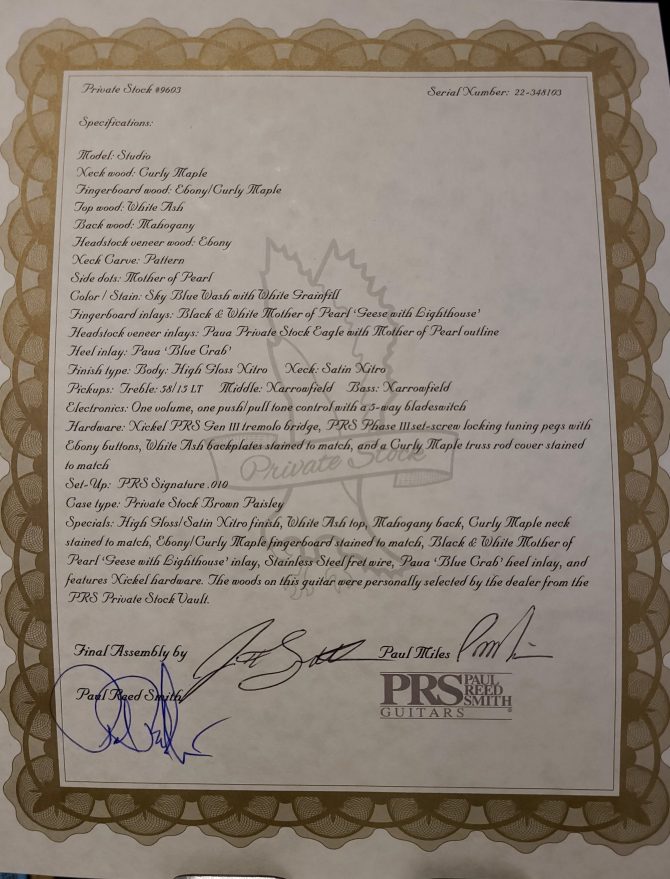 Private Stock #9603
Serial Number: 22-348103
Specifications:
Model: Studio
Neck wood: Curly Maple
Fingerboard wood: Ebony/Curly Maple
Top wood: White Ash
Back wood: Mahogany
Headstock veneer wood: Ebony
Neck Carve: Pattern
Side dots: Mother of Pearl
Color / Stain: Sky Blue Wash with White Grainfill
Fingerboard inlays: Black & White Mother of Pearl 'Geese with Lighthouse'
Headstock veneer inlays: Paua Private Stock Eagle with Mother of Pearl outline
Heel inlay: Paua 'Blue Crab'
Finish type: Body: High Gloss Nitro Neck: Satin Nitro
Pickups: Treble: 58/15 LT Middle: Narrowfield Bass: Narrowfield
Electronics: One volume, one push/pull tone control with a 5-way bladeswitch
Hardware: Nickel PRS Gen III tremolo bridge, PRS Phase III set-screw locking tuning pegs with
Ebony buttons, White Ash backplates stained to match, and a Curly Maple truss rod cover stained
to match
Private Stock
Set-Up: PRS Signature .010
Case type: Private Stock Brown Paisley
Specials: High Gloss/Satin Nitro finish, White Ash top, Mahogany back, Curly Maple neck
stained to match, Ebony/Curly Maple fingerboard stained to match, Black & White Mother of
Pearl 'Geese with Lighthouse' inlay, Stainless Steel fret wire, Paua 'Blue Crab' heel inlay, and
features Nickel hardware. The woods on this guitar were personally selected by the dealer from the
PRS Private Stock Vault.
Final Assembly by
Paul Miles
Paul Reed Smith
PRS PAUL REED SMITH
GUITARS